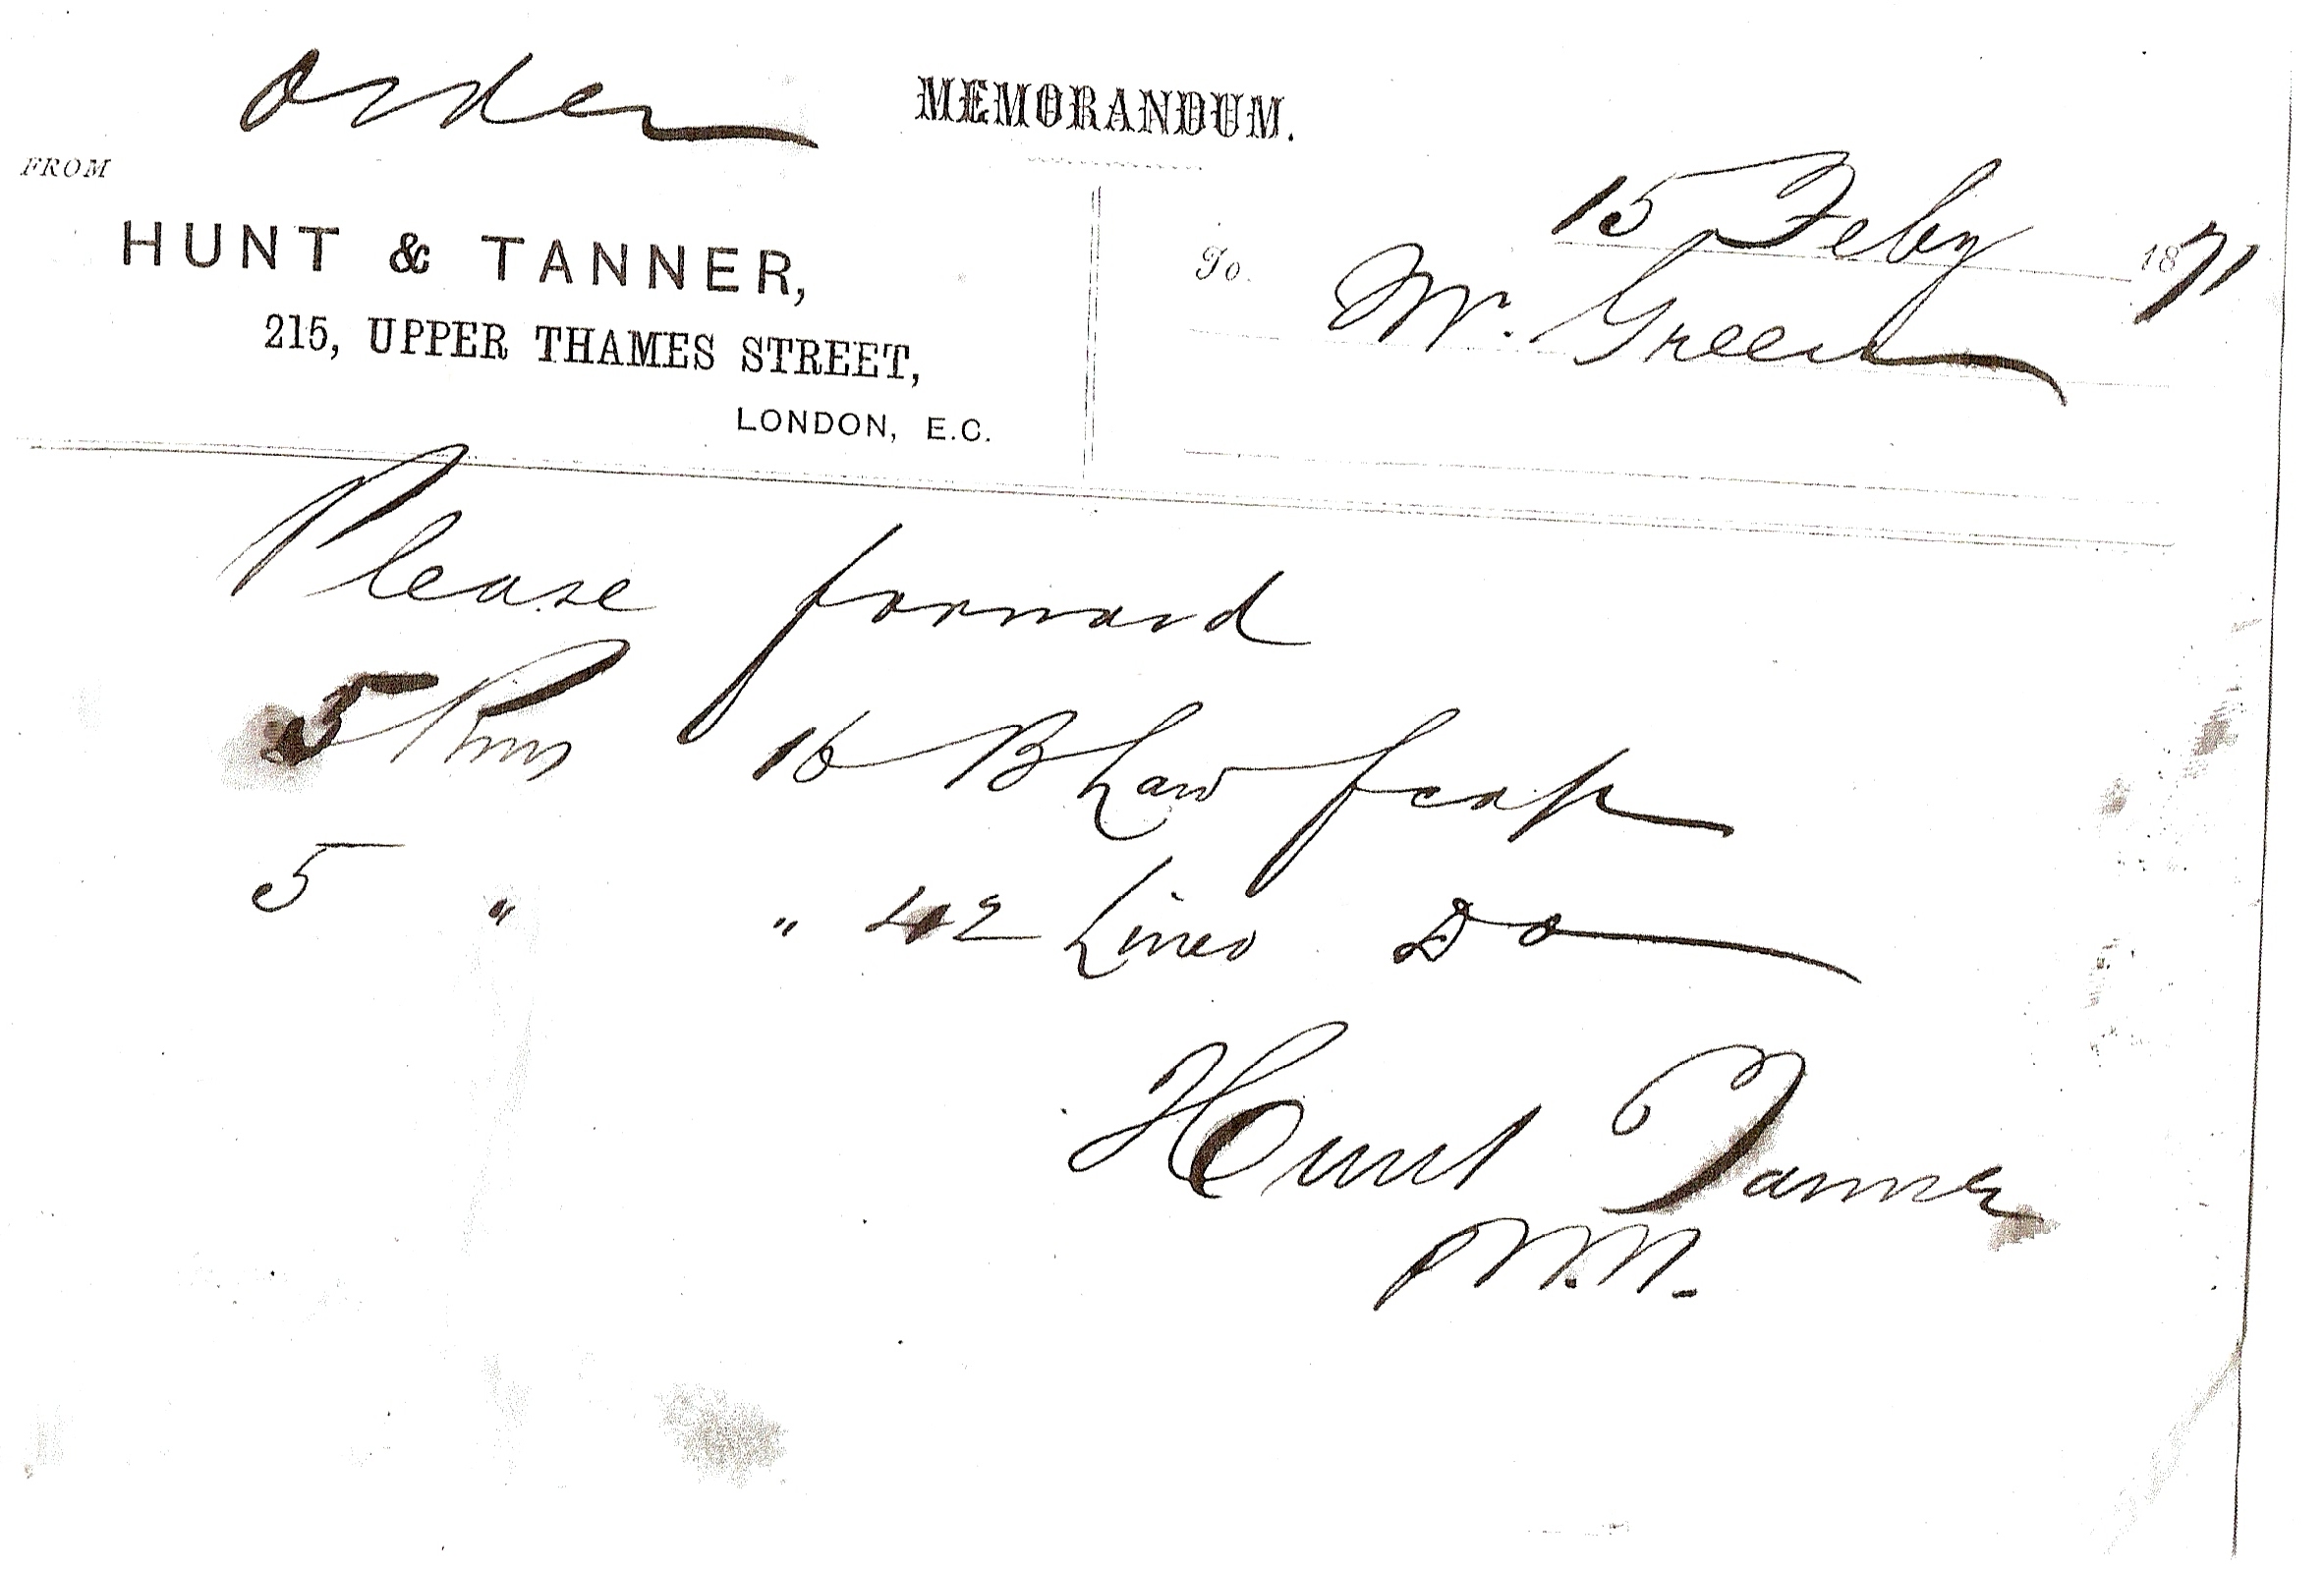 Order
MEMORANDUM.
FROM
HUNT & TANNER,
215, UPPER THAMES STREET,
LONDON, E.C.
15 Feby 1871
To
Mr. Green
Please forward
5 Rms 16 B Law fcap
5 " " 42 Lines Do
Hunt Tanner